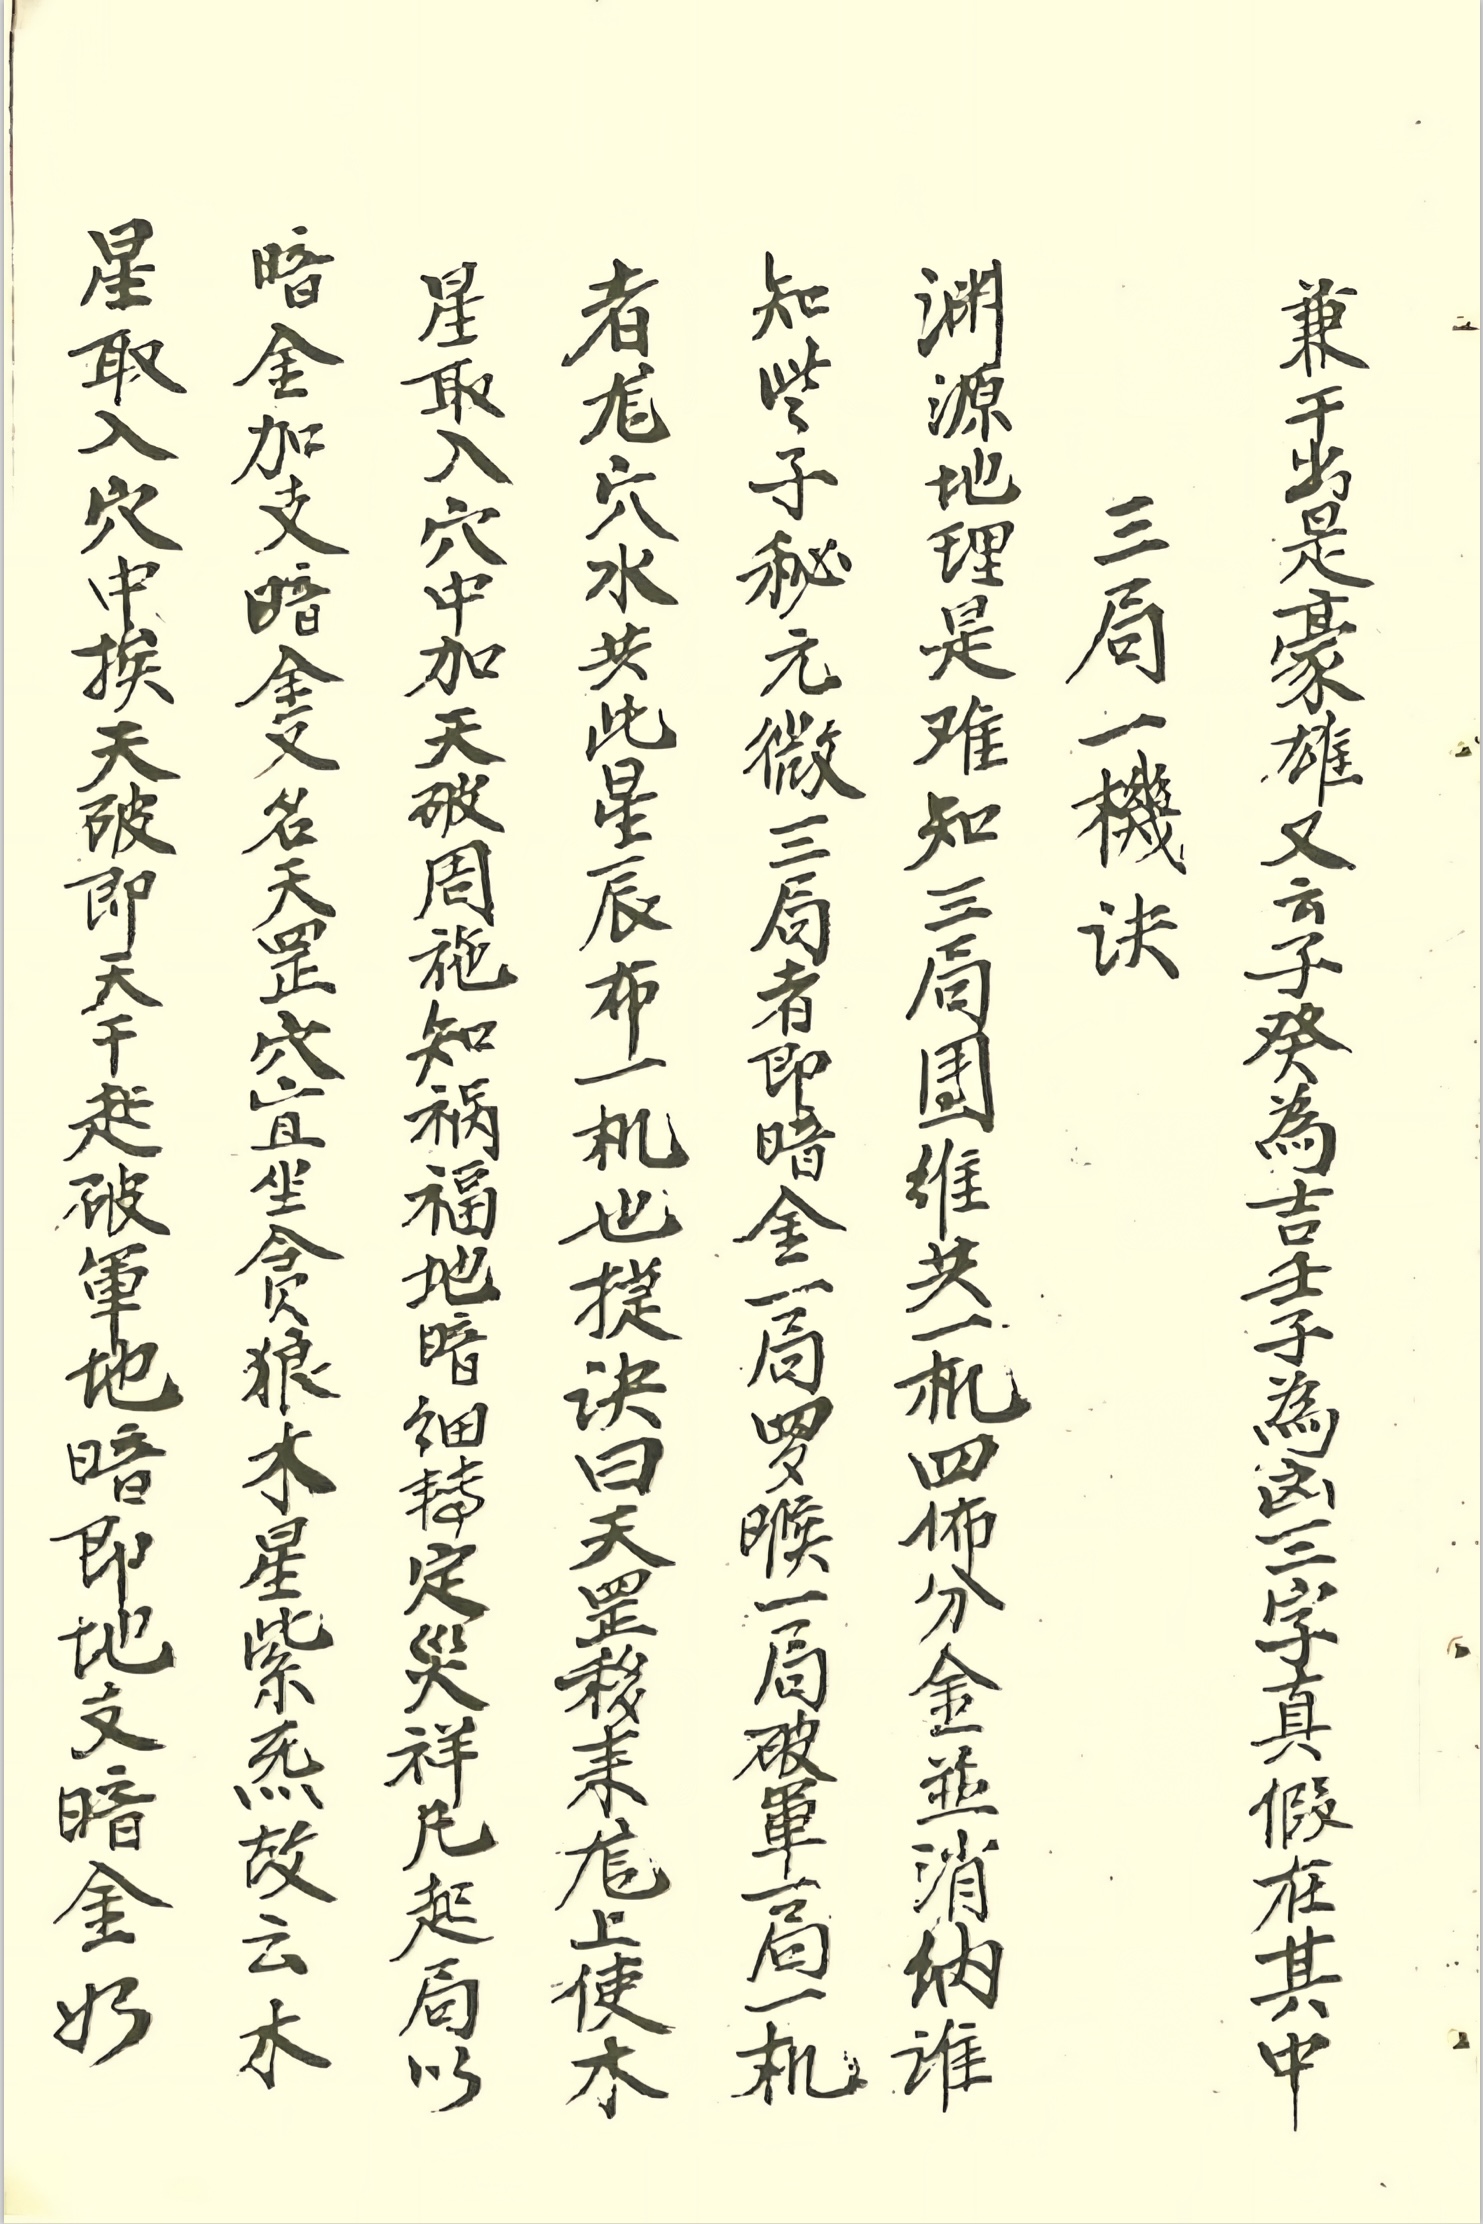 兼干出是豪雄又云子癸為吉壬子為凶三字真假在其中
三局一機诀
渊源地理是难知三局囯维共一机四佈分金並消纳谁
知些子秘元微三局者即暗金一局罗睺一局破軍一局一机
者尨穴水共此星辰布一机也提诀曰天罡移来尨上使木
星取入穴中加天破周施知祸福地暗细转定災祥凡起局以
暗金加支暗金又名天罡穴宜坐贪狼木星紫炁故云木
星取入穴中挨天破即天干起破軍地暗即地支暗金如